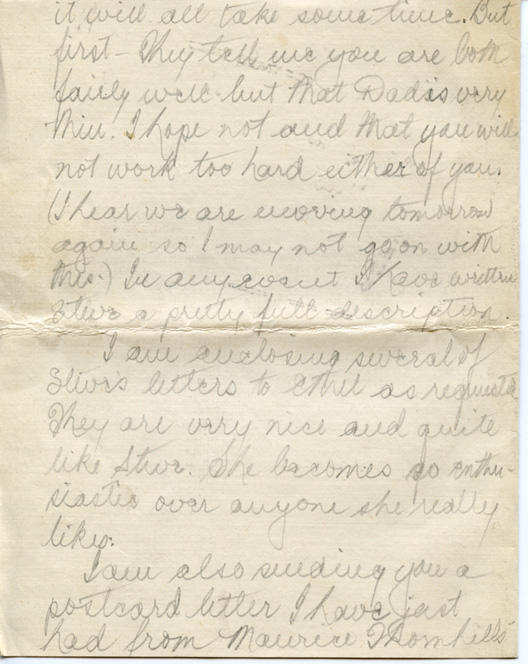 it will all take some time. But
first – They tell me you are both
fairly well but that Dad is very
thin. I hope not and that you will
not work too hard either of you.
(I hear we are moving tomorrow
again so I may not go on with
this.) In any event I have written
a pretty full description.
I am enclosing several of
letters to Ethel as requested
They are very nice and quite
like She becomes so enthu-
siastic over anyone she really
likes.
I am also sending you a
postcard letter I have just
had from Maurice Thornhill's